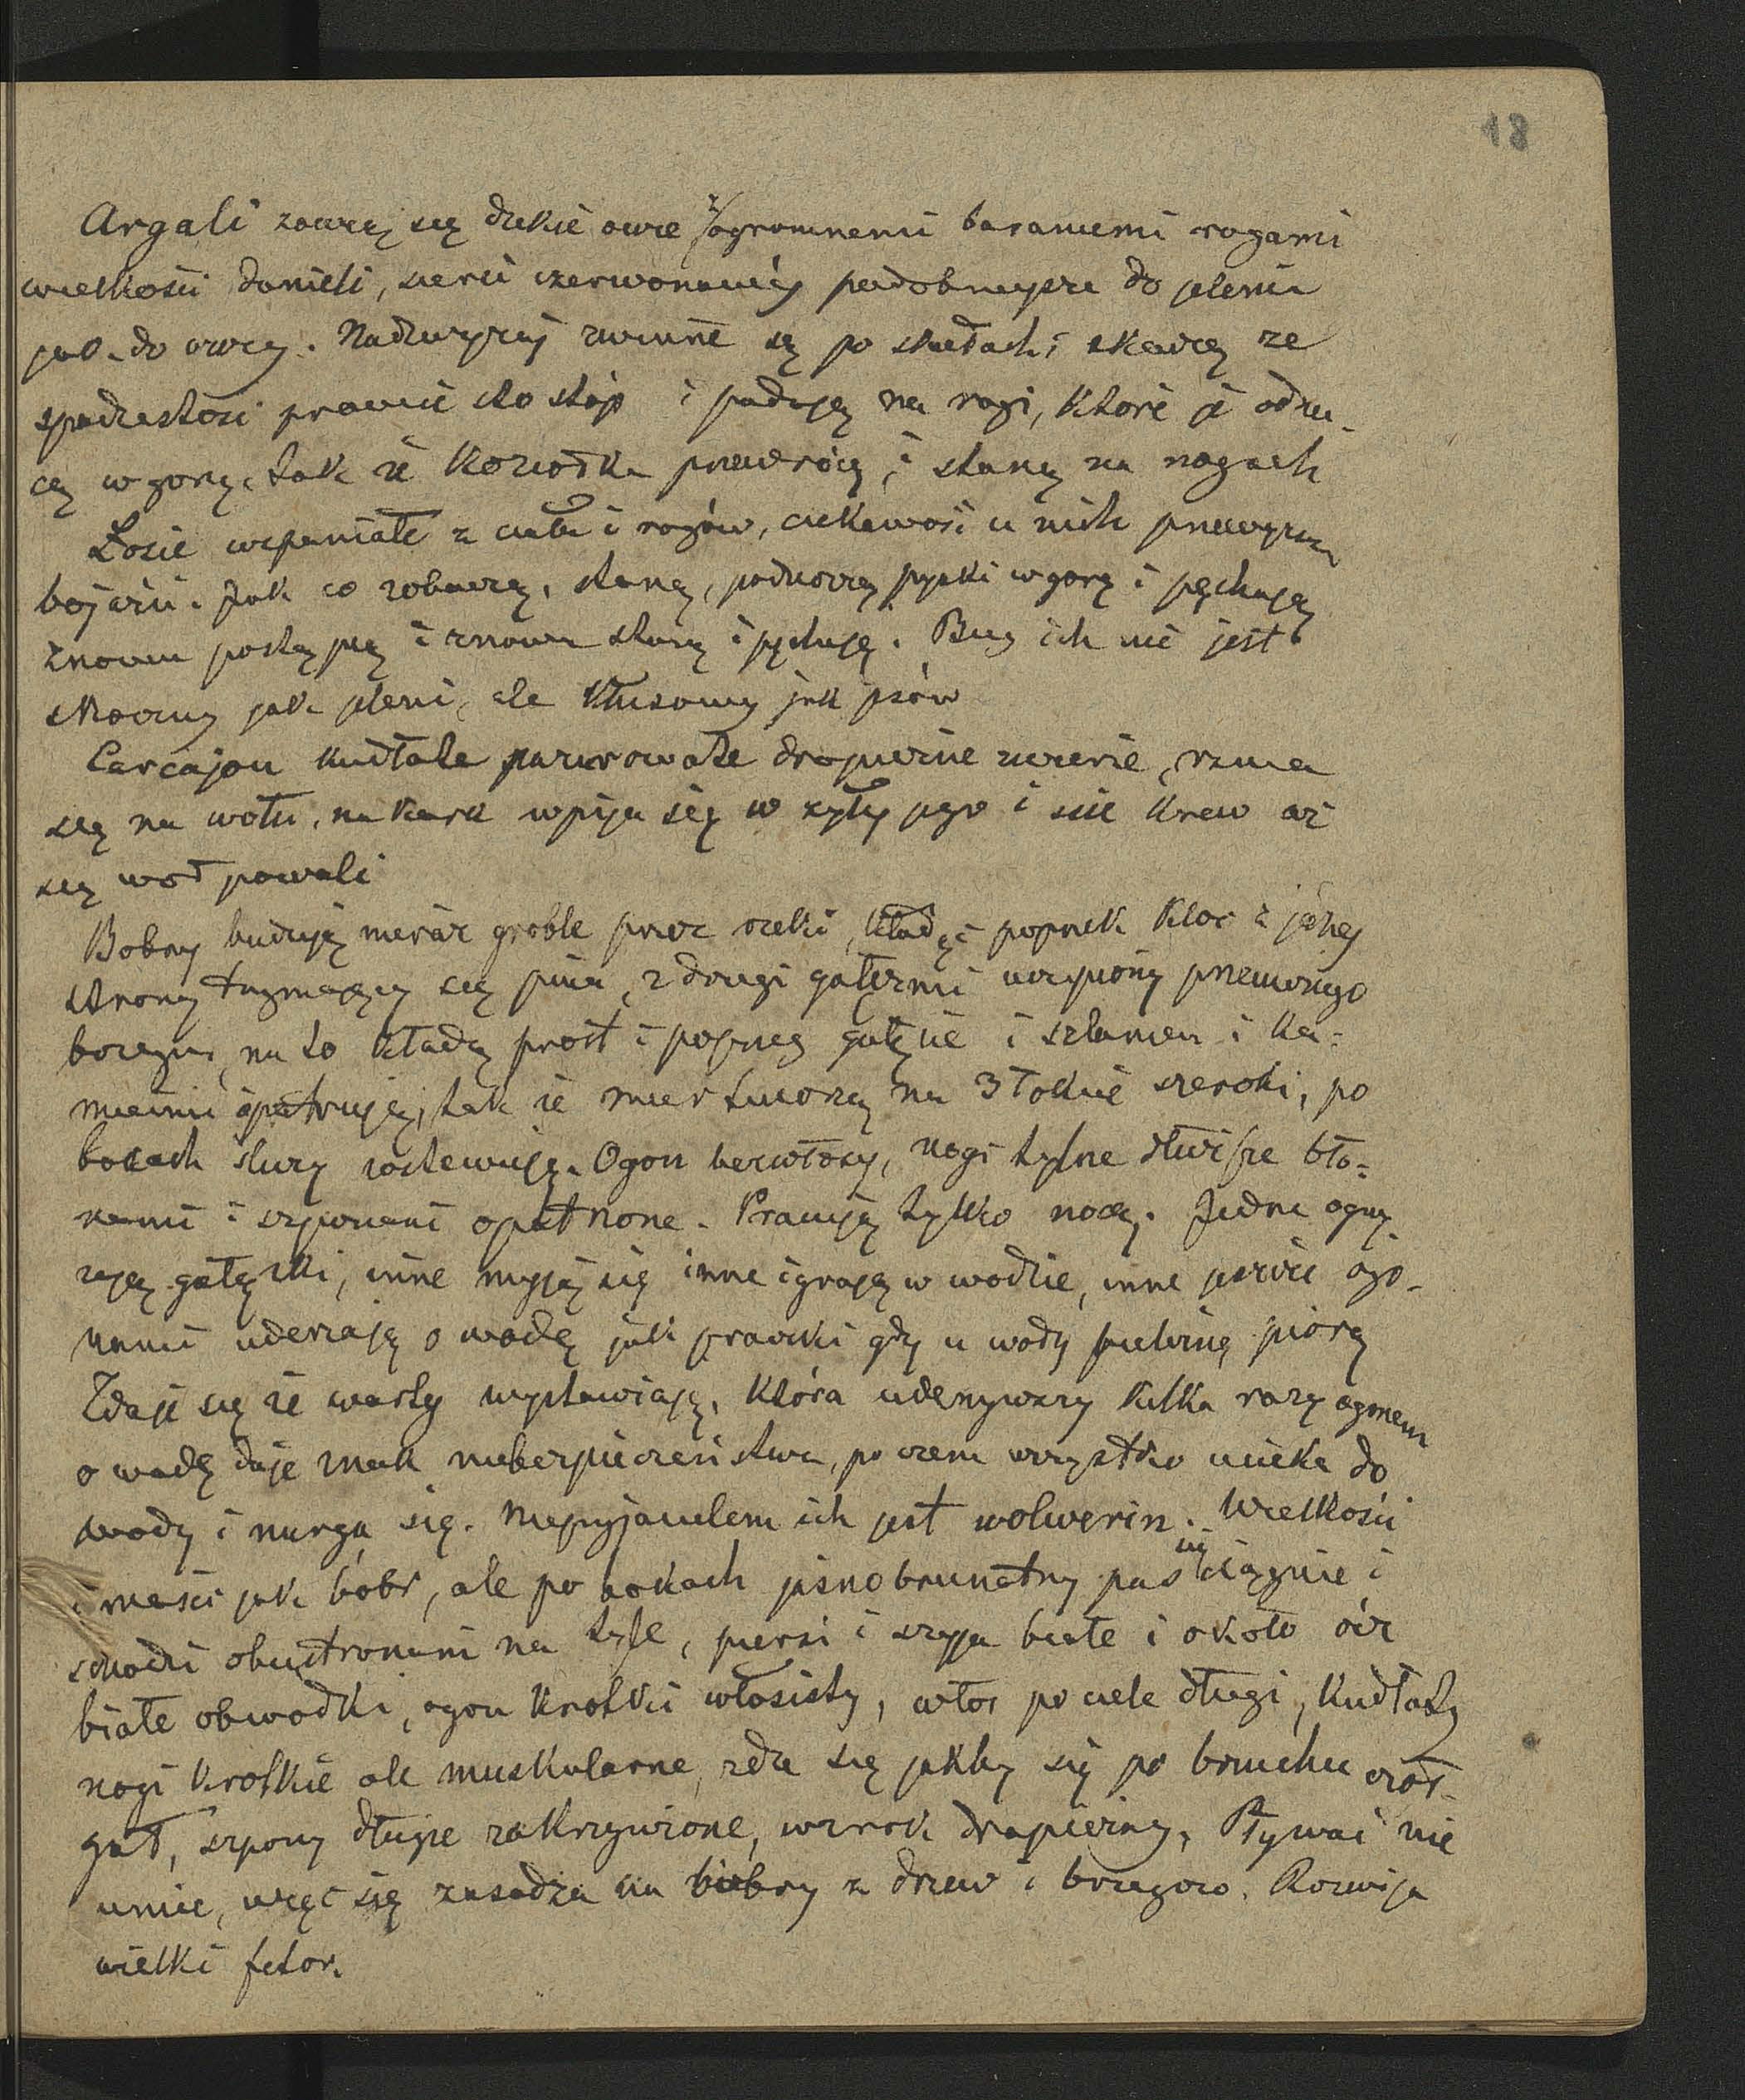 18
Argali zowią się dzikie owce z ogromnemi baraniemi rogami
wielkości danieli, sierci czerwonawéj podobniejsze do jelenia
jak do owcy. Nadzwyczaj zwinne są po skałach, skaczą ze
spadzistości prawie sto stóp i padają na rogi, które je odrzu-
cą w gorę, tak że koziołka przewrócą i staną na nogach
Łosie wspaniałe z ciała i rogów, ciekawość u nich przewyższa
bojaźń. Jak co zobaczą, staną, podnoszą pyski w gorę i pąchają
znowu postąpią i znowu staną i pąchają. Bieg ich nie jest
skoczny jak jeleni, ale kłusowy jak psów
Carcajou kudłate pazurowate drapieżne zwierze, rzuca
się na wołu, na kark wpija się w żyły jego i ssie krew aż
się woł powali
Bobry budują nieraz groble przez rzeki, kładąc poprzek kloc z jednej
strony trzymający się pnia, z drugi gałęzmi uczepiony przeciwnego
brzegu, na to kładą prost i poprzeg gałęzie i szlamem i ka-
mieniami opatrują, tak że mur tworzą na 3 łokcie szeroki, po
bokach sluzy zostawują. Ogon bezwłosy, nogi tylne dłuższe bło-
nami i szponami opatrzone. Pracują tylko nocą. Jedne ogry-
zają gałązki, inne myją się inne igrają w wodzie, inne jeszcze ogo-
nami uderzają o wodę jak praczki gdy u wody bieliznę piorą
Zdaje się że warty wystawiają, która uderzywszy kilka razy ogonem
o wodę daje znak niebezpieczeństwa, po czem wszystko ucieka do
wody i nurza się. Nieprzyjacielem ich jest wolverin. Wielkości
i maści jak bóbr, ale po bokach jasnobrunatny pas się ciągnie i
schodzi obustronami na tyle, piersi i szyja białe i około ócz
białe obwodki, ogon krotki włosisty, włos po ciele długi, kudłaty
nogi krotkie ale muskularne, zda się jakby się po brzuchu czoł-
gał, szpony długie zakrzywione, wzrok drapieżny, Pływać nie
umie, więc się zasadza na bobry z drzew i brzegow. Rozwija
wielki fetor.